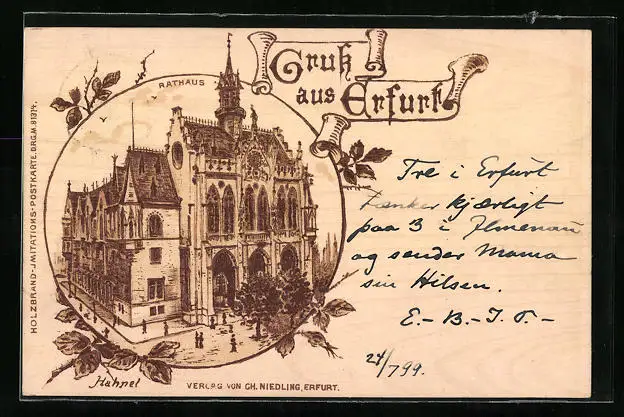 Gruß
aus Erfurt
RATHAUS
HOLZBRAND-IMITATIONS-POSTKARTE. D.R.G.M. 81314.
Tre i Erfurt
tænker kjærligt
paa 3 i Ilmenau
og sender Mama
sin Hilsen.
E. - B. - I. T. -
24/7 99.
Hahnel
VERLAG VON CH. NIEDLING, ERFURT.